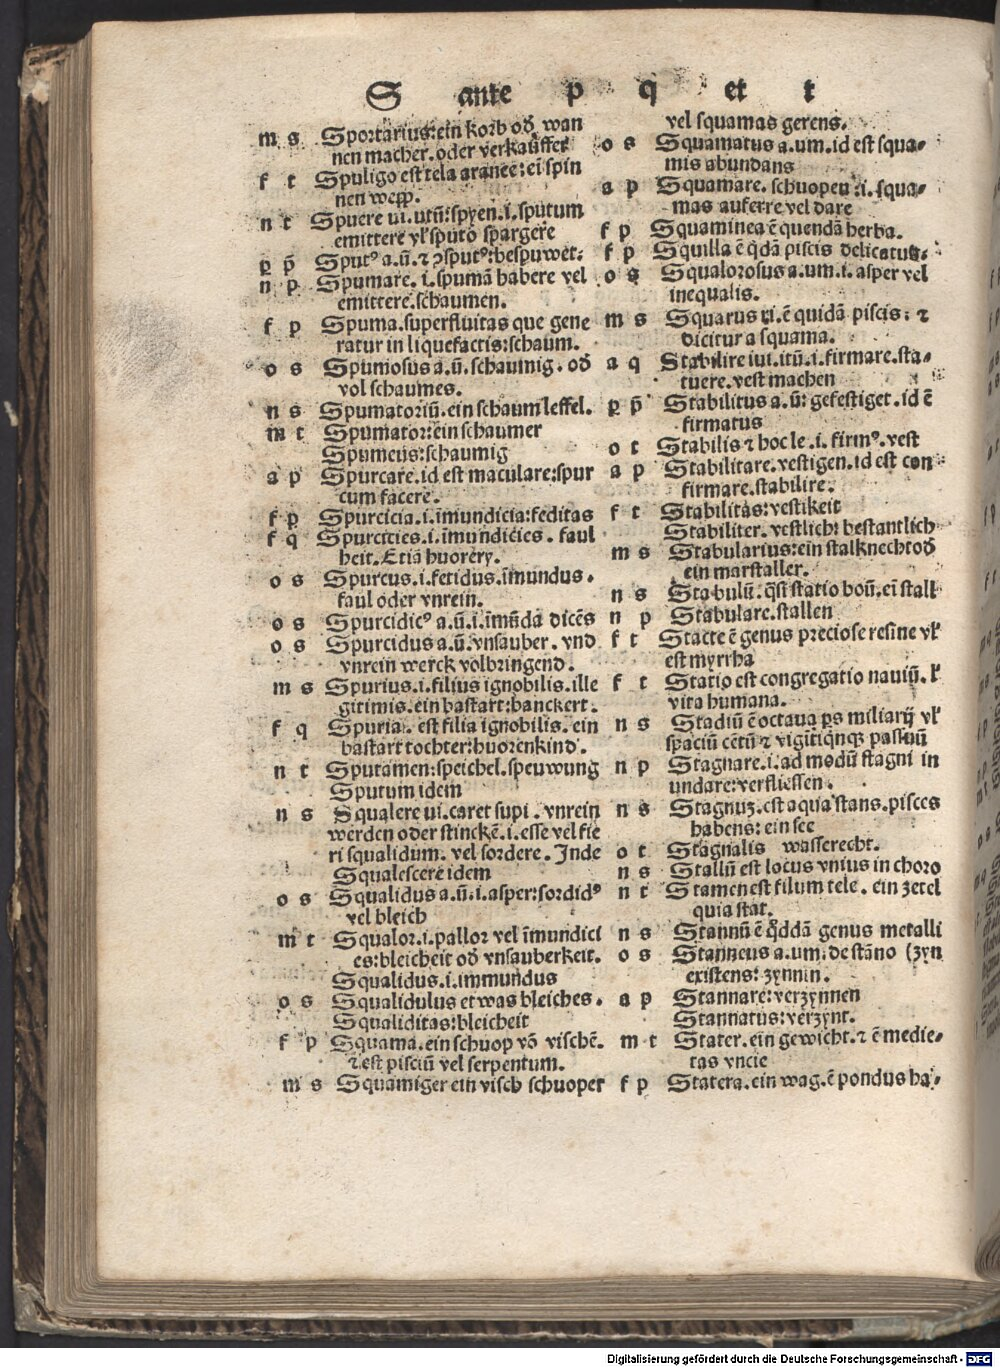 S ante p q et t
m s Sportarius:ein korb od̃ wan
nen macher.oder verkauffer
f t Spuligo est tela aranee:ei spin
nen wepp.
n t Spuere ui.utũ:spyen.i.sputum
emittere vl' sputo spargere
p p̃ Sputꝰ a.ũ.⁊ ↄsputꝰ:bespuwet:
n p Spumare.i.spumã habere vel
emittere.schaumen.
f p Spuma.superfluitas que gene
ratur in liquefactis:schaum.
o s Spumosus a.ũ.schaumig.od̃
vol schaumes.
n s Spumatoriũ.ein schaum leffel.
m t Spumator:ein schaumer
Spumeus:schaumig
a p Spurcare.id est maculare:spur
cum facere.
f p Spurcicia.i.imundicia:feditas
f q Spurcities.i.imundicies.faul
heit.Etiã huorery.
o s Spurcus.i.fetidus.ĩmundus.
faul oder vnrein.
o s Spurcidicꝰ a.ũ.i.ĩmũda dicẽs
o s Spurcidus a.ũ.vnsauber.vnd
vnrein werck volbringend.
m s Spurius.i.filius ignobilis.ille
gitimis.ein bastart:banckert.
f q Spuria.est filia ignobilis.ein
bastart tochter:huorenkind.
n t Sputamen:speichel.speuwung
Sputum idem
n s Squalere ui.caret supi.vnrein
werden oder stinckẽ.i.esse vel fie
ri squalidum.vel sordere.Inde
Squalescere idem
o s Squalidus a.ũ.i.asper:sordidꝰ
vel bleich
m t Squalor.i.pallor vel ĩmundici
es:bleicheit od̃ vnsauberkeit.
Squalidus.i.immundus
o s Squalidulus etwas bleiches.
Squaliditas:bleicheit
f p Squama.ein schuop võ vischẽ.
⁊ est pisciũ vel serpentum.
m s Squamiger ein visch schuoper
vel squamas gerens.
o s Squamatus a.um.id est squa-
mis abundans
a p Squamare.schuopen.i.squa-
mas auferre vel dare
f p Squaminea ẽ quendã herba.
f p Squilla ẽ q̃dã piscis delicatus.
o s Squalorosus a.um.i.asper vel
inequalis.
m s Squarus ri.ẽ quidã piscis:⁊
dicitur a squama.
a q Stabilire iui.itũ.i.firmare.sta-
tuere.vest machen
p p̃ Stabilitus a.ũ:gefestiget.id ẽ
firmatus
o t Stabilis ⁊ hoc le.i.firmꝰ.vest
a p Stabilitare.vestigen.id est con
firmare.stabilire.
f t Stabilitas:vestikeit
Stabiliter.vestlich:bestantlich
m s Stabularius:ein stalknecht od̃
ein marstaller.
n s Stabulũ.q̃si statio boũ.eĩ stall
n p Stabulare.stallen
f t Stacte ẽ genus preciose resine vl'
est myrrha
f t Statio est congregatio nauiũ.l'
vita humana.
n s Stadiũ ẽ octaua ꝑs miliarij vl'
spaciũ cẽtũ ⁊ vigĩtiqnqꝫ passuũ
n p Stagnare.i.ad modũ stagni in
undare:verfliessen.
n s Stagnuꝫ.est aqua stans.pisces
habens:ein see
o t Stagnalis wasserecht.
n s Stallũ est locus vnius in choro
n t Stamen est filum tele.ein zetel
quia stat.
n s Stannũ ẽ q̃ddã genus metalli
o s Stanneus a.um.de stãno (zyn
existens:zynnin.
a p Stannare:verzynnen
Stannatus:verzynt.
m t Stater.ein gewicht.⁊ ẽ medie-
tas vncie
f p Statera.ein wag.ẽ pondus ha-
Digitalisierung gefördert durch die Deutsche Forschungsgemeinschaft - DFG